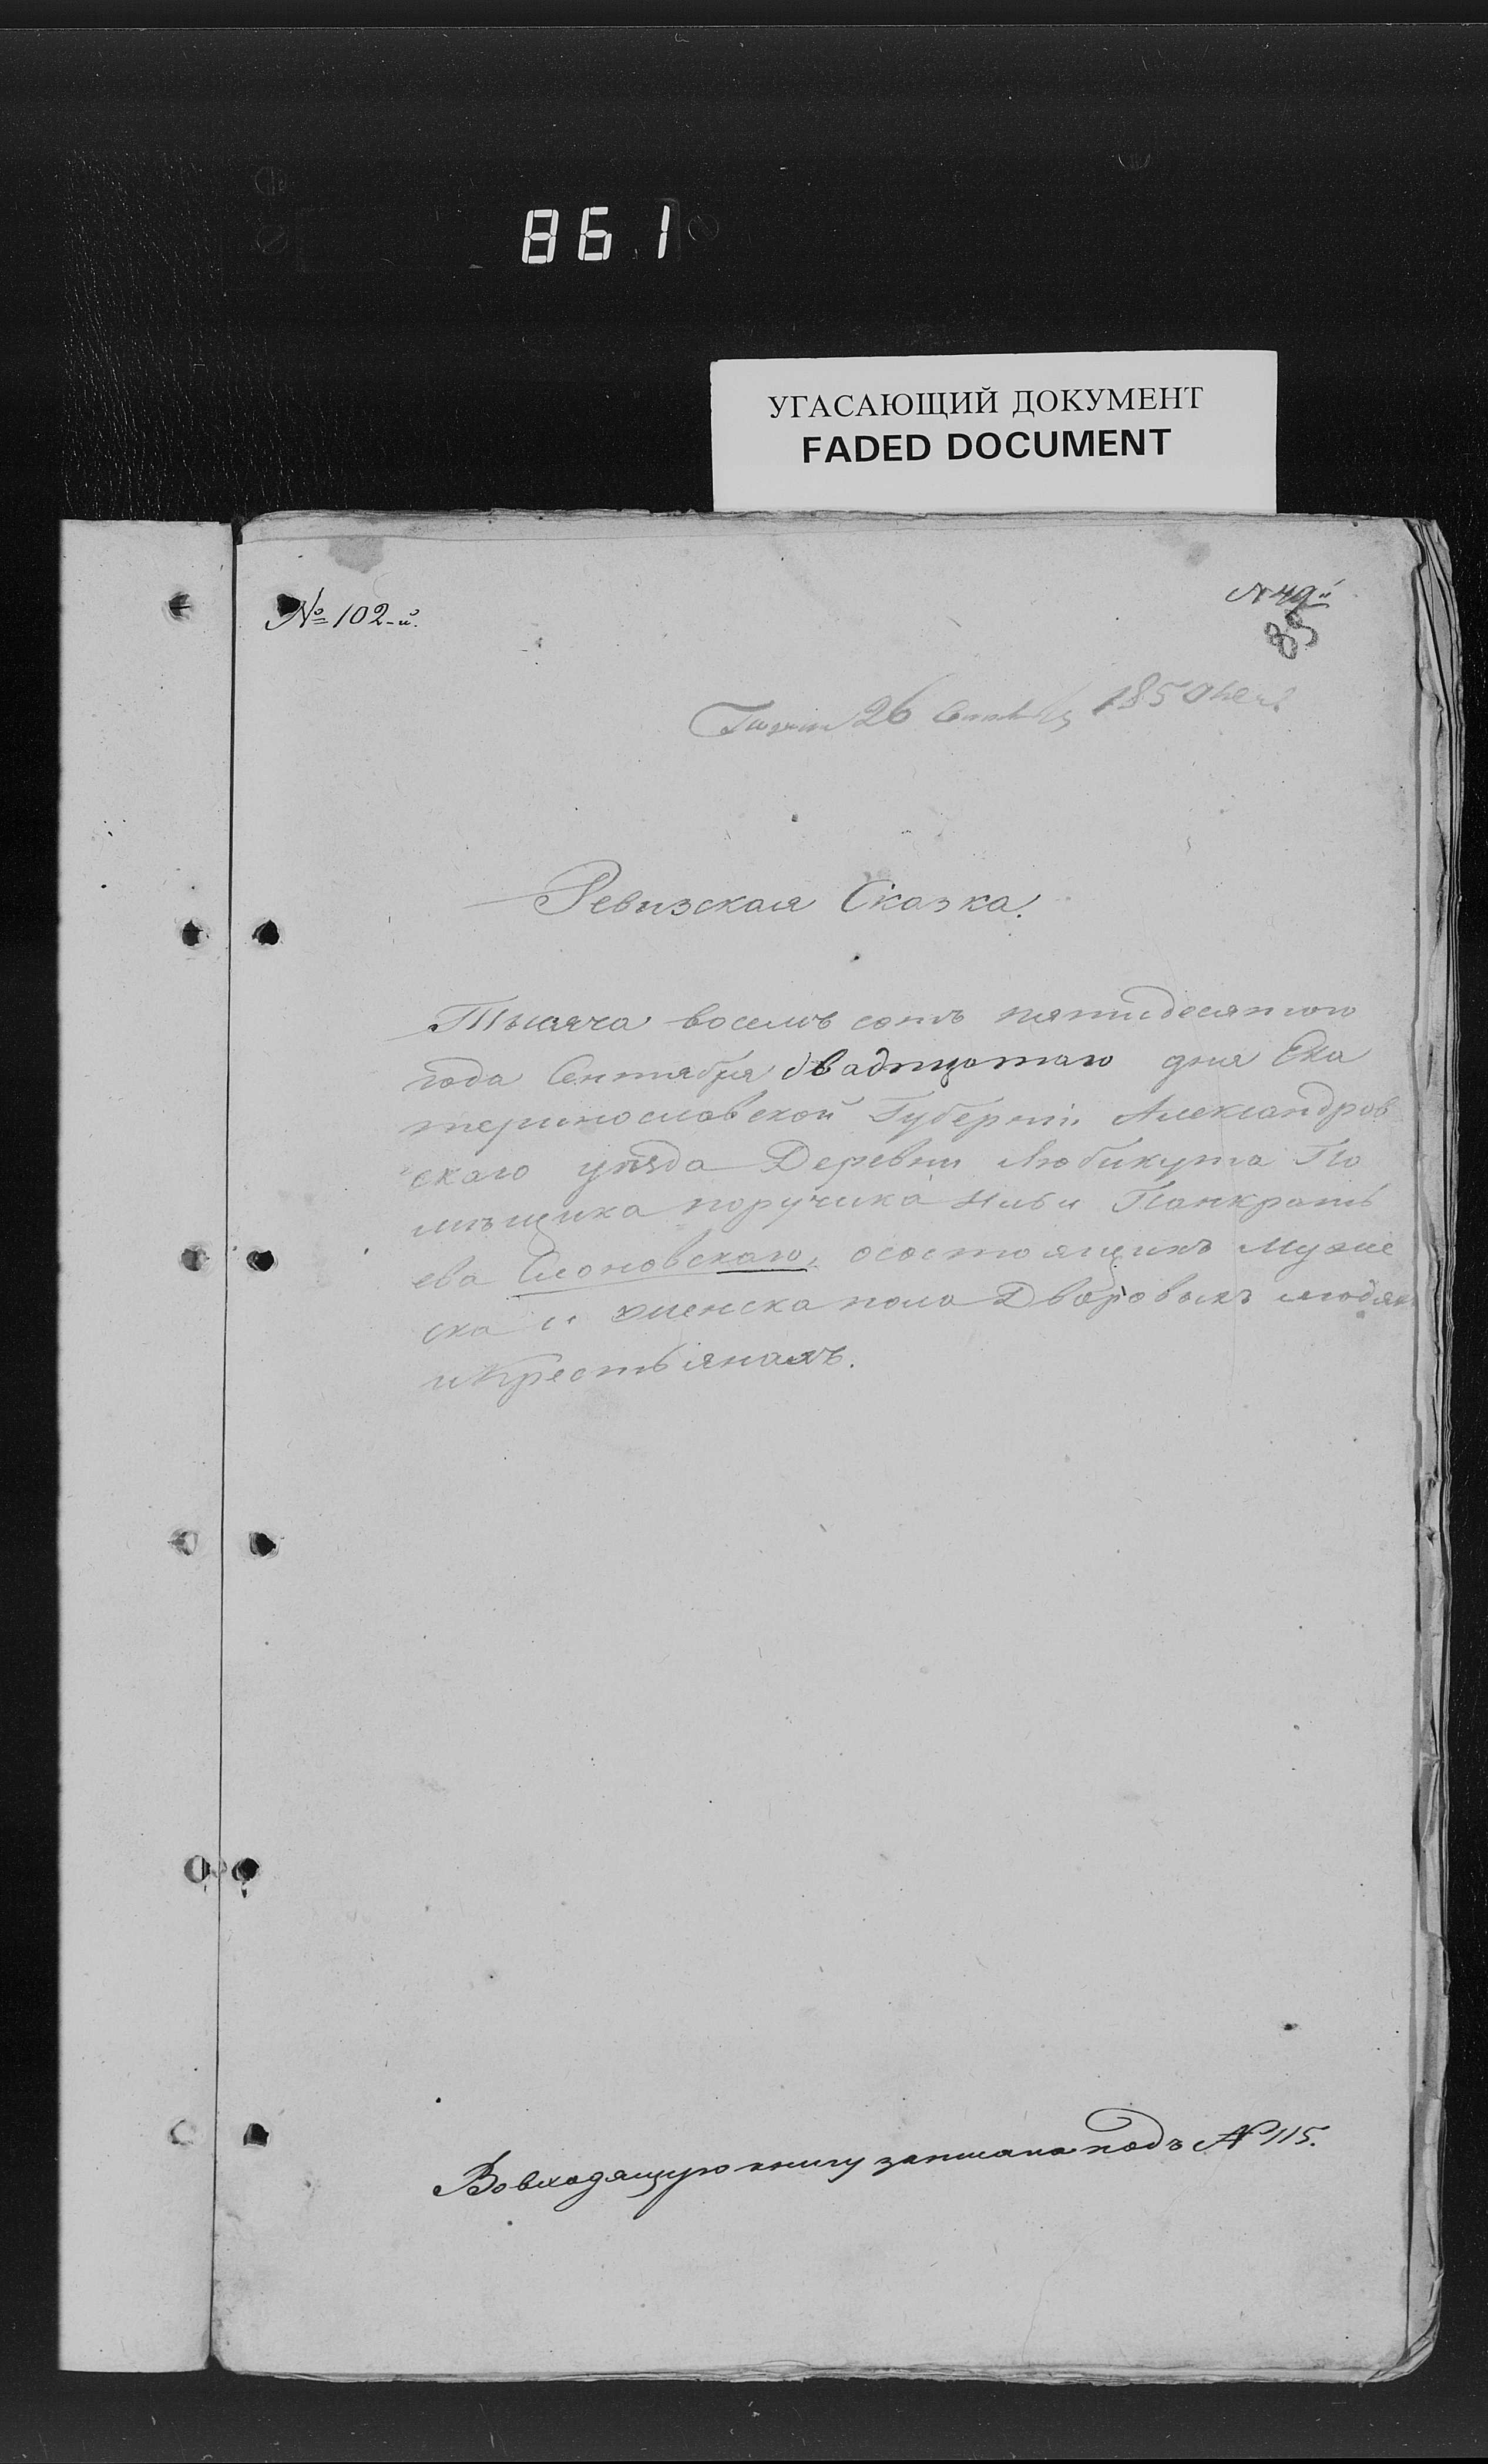 861
УГАСАЮЩИЙ ДОКУМЕНТ
FADED DOCUMENT
№ 102-й.
№ 49й
85
26 Сентября 1850
Ревизская Сказка.
Тысяча восемь сотъ пятидесятого
года Сентября двадцатаго дня Ека
теринославской Губерніи Александров
скаго уѣзда Деревни Любикута По
мѣщика поручика Ильи Панкратъ
ева Слоновскаго, осостоящихъ муже
ска и женска пола Дворовыхъ людях
и Крестьянахъ.
Во входящую книгу записана подъ № 115.